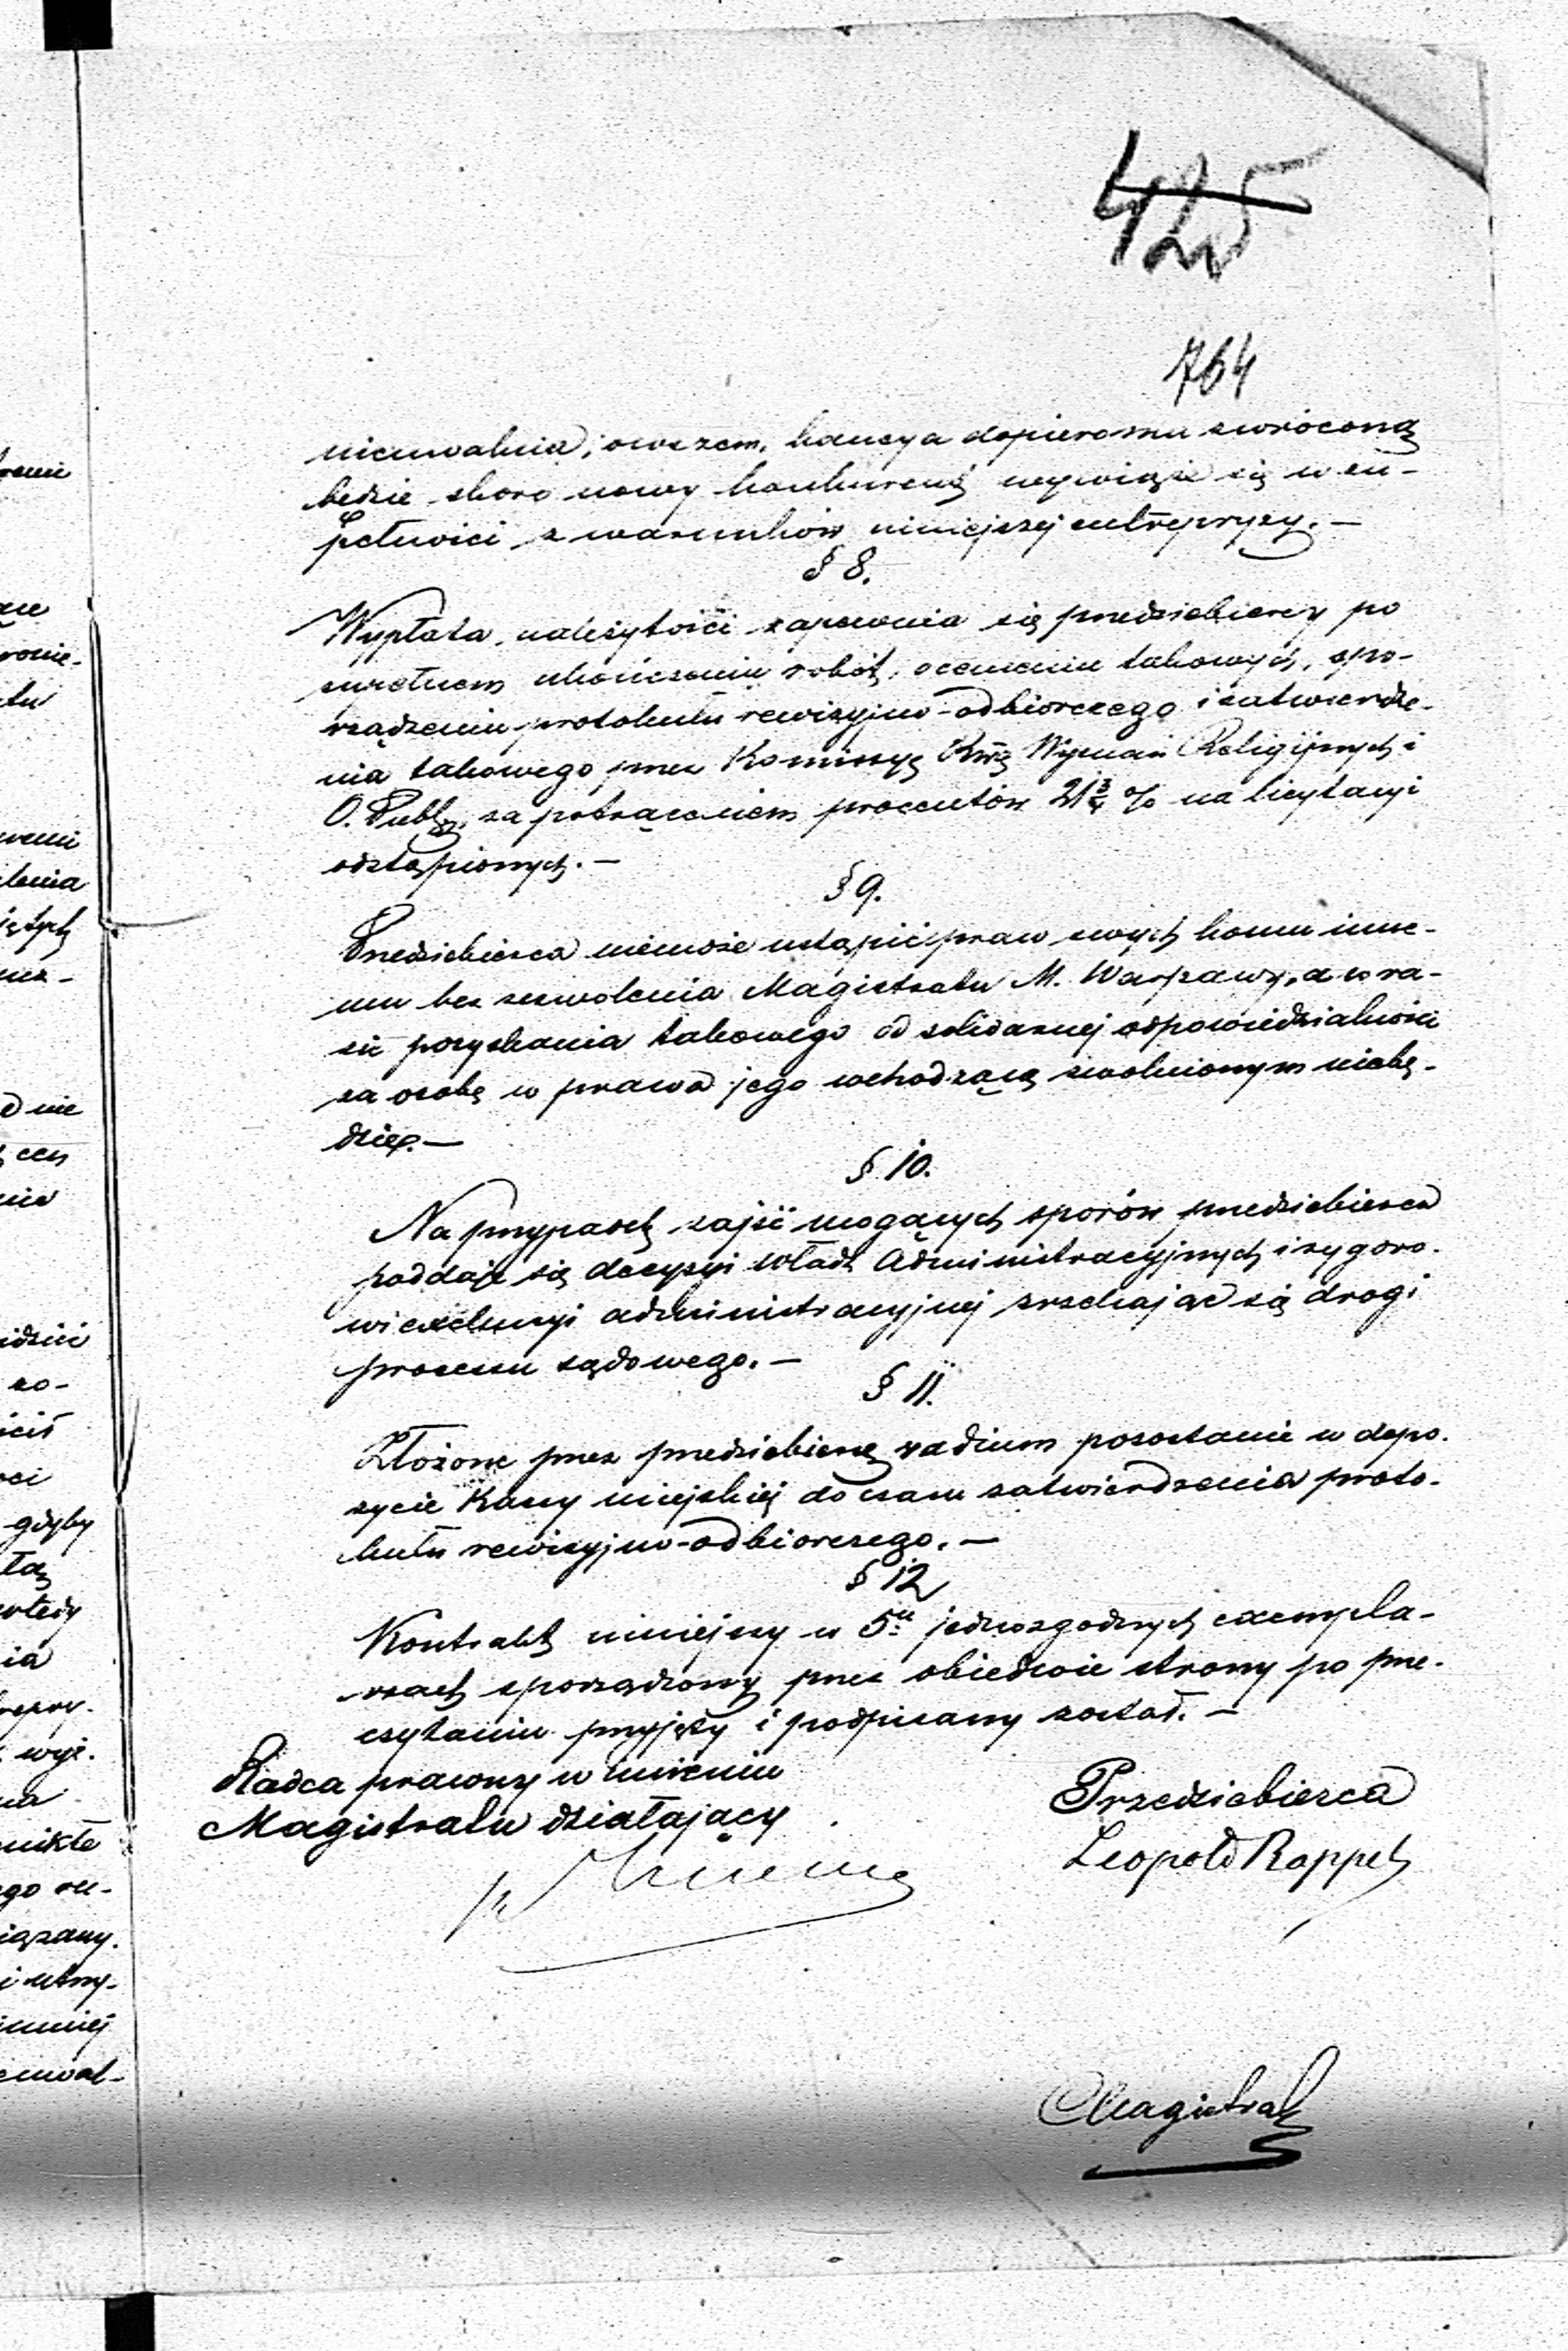 425
764
nieuwalnia, owszem, kaucya dopiero mu zwróconą
będzie skoro nowy konkurent wywiąże się w zu-
pełności z warunków niniejszej entrepryzy. —
§ 8.
Wypłata należytości zapewnia się przedsiebiercy po
zupełnem ukończeniu robót, ocenieniu takowych, spo-
rządzeniu protokułu rewizyjno-odbiorczego i zatwierdze-
nia takowego przez Kommissyę Rzą Wyznań Religijnych i
O. Publ. za potrąceniem procentów 21 3/4 % na licytacyi
odstąpionych. —
§ 9.
Przedsiebierca niemoże ustąpić praw swych komu inne-
mu bez zezwolenia Magistratu M. Warszawy, a w ra-
zie pozyskania takowego od solidarnej odpowiedzialności
za osobę w prawa jego wchodzącą zwolnionym niebę-
dzie. —
§ 10.
Na przypadek zajść mogących sporów przedsiebierca
poddaje się decyzyi Władz Administracyjnych i rygoro-
wi exekucyi administracyjnej zrzekając się drogi
processu sądowego. —
§ 11.
Złożone przez przedsiebiercę vadium pozostanie w depo-
zycie Kassy miejskiej do czasu zatwierdzenia proto-
kułu rewizyjno-odbiorczego. —
§ 12
Kontrakt niniejszy w 5u jednozgodnych exempla-
rzach sporządzony przez obiedwie strony po prze-
czytaniu przyjęty i podpisany został. —
Radca prawny w imieniu
Magistratu działający
Przedsiebierca
Leopold Rappel
Magistrat